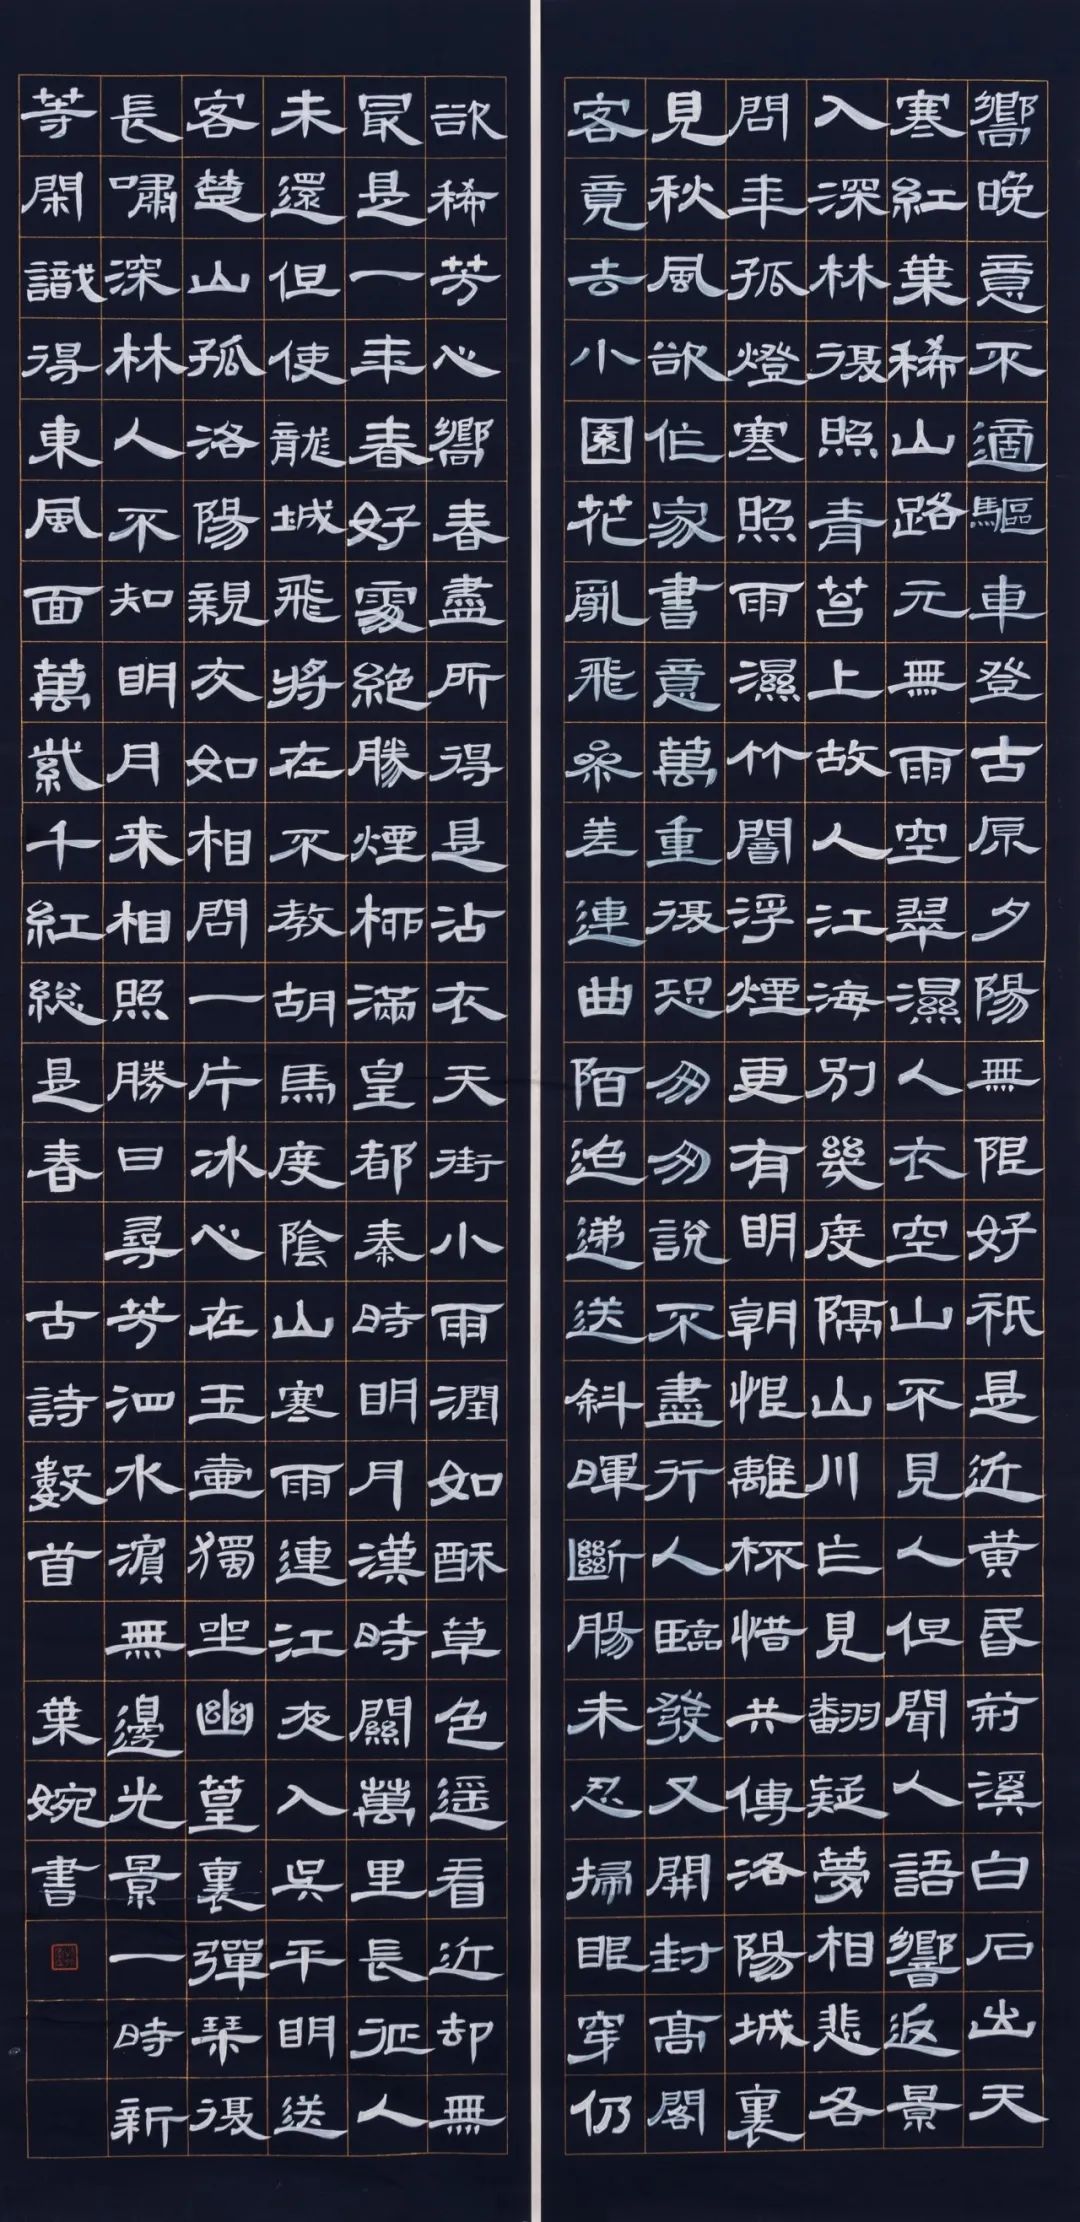 嚮晚意不適驅車登古原夕陽無限好祇是近黃昏荊溪白石出天
寒紅葉稀山路元無雨空翠濕人衣空山不見人但聞人語響返景
入深林復照青苔上故人江海別幾度隔山川乍見翻疑夢相悲各
問年孤燈寒照雨濕竹闇浮煙更有明朝恨離杯惜共傳洛陽城裏
見秋風欲作家書意萬重復恐匆匆說不盡行人臨發又開封高閣
客竟去小園花亂飛參差連曲陌迢遞送斜暉斷腸未忍掃眼穿仍
欲稀芳心嚮春盡所得是沾衣天街小雨潤如酥草色遥看近却無
最是一年春好處絕勝煙柳滿皇都秦時明月漢時關萬里長征人
未還但使龍城飛將在不教胡馬度陰山寒雨連江夜入吳平明送
客楚山孤洛陽親友如相問一片冰心在玉壺獨坐幽篁裏彈琴復
長嘯深林人不知明月来相照勝日尋芳泗水濱無邊光景一時新
等閑識得東風面萬紫千紅総是春 古詩數首 葉婉書